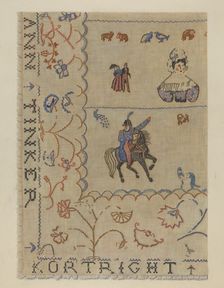 ANN ↑ TINKER
KORTRIGHT ↑